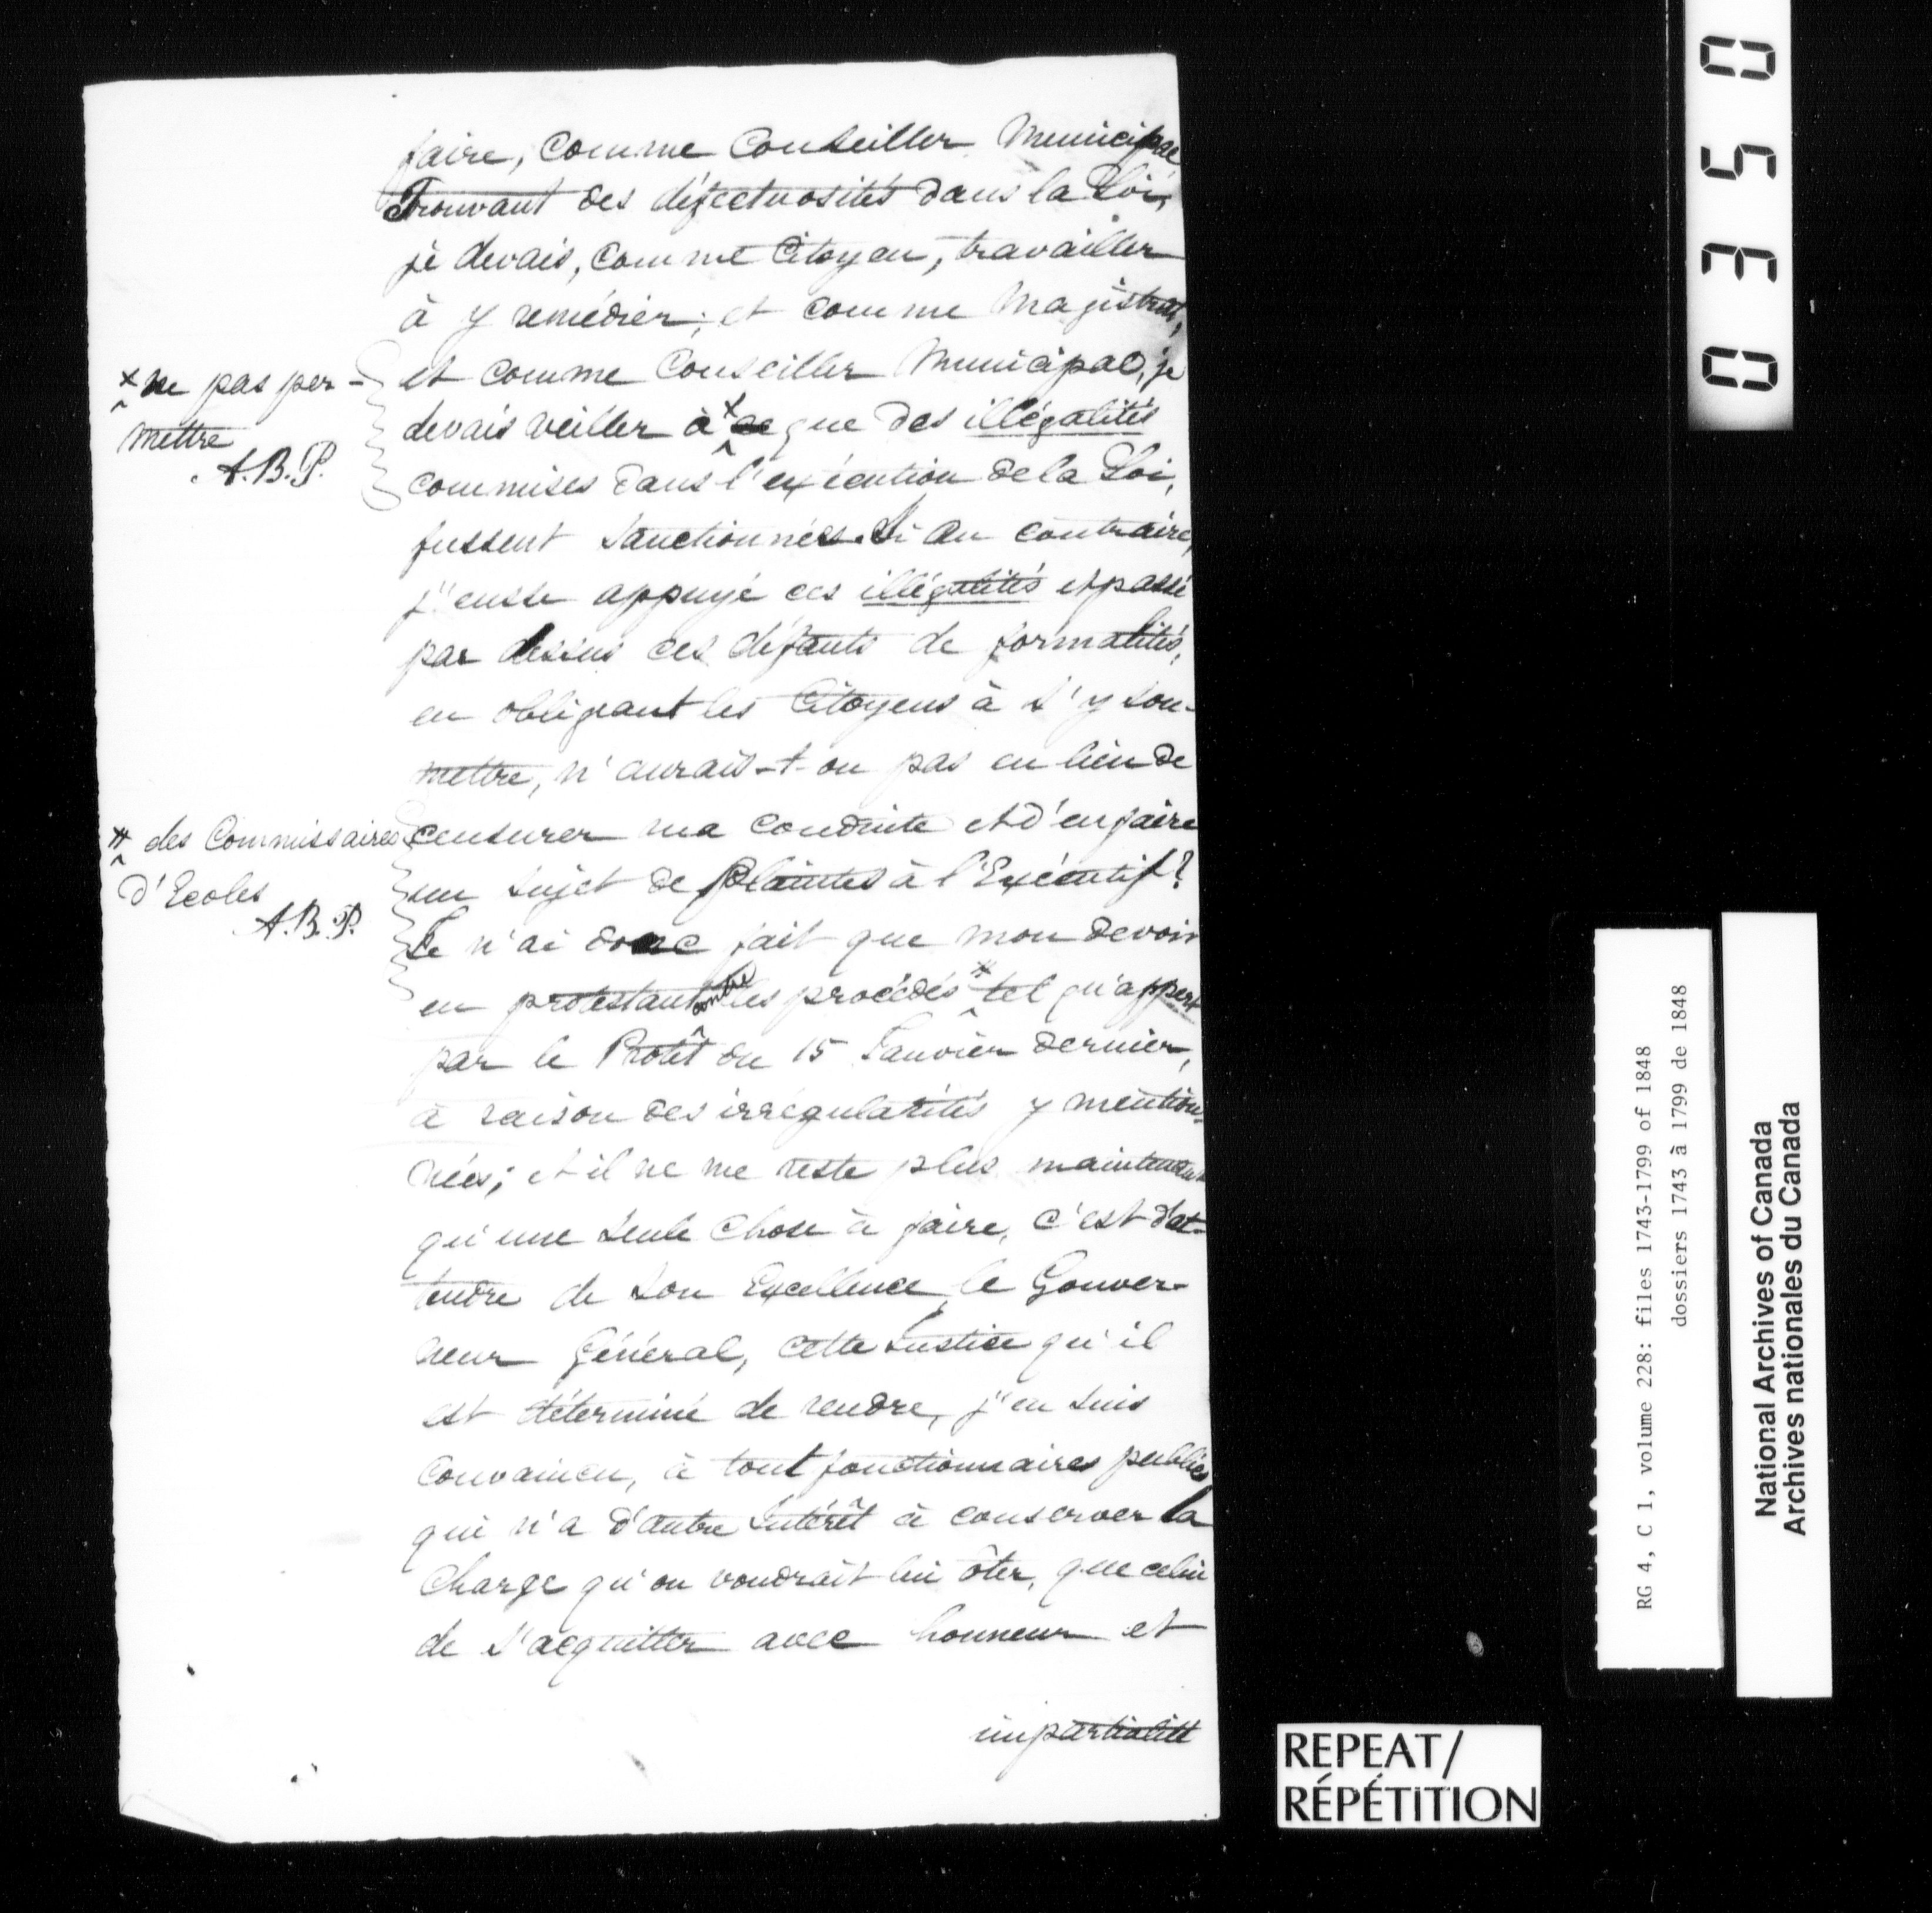 faire, comme Conseiller Municipal
Trouvant des défectuosités dans la Loi,
je devais, comme Citoyen, travailler
à y remédier; et comme Magistrat,
et comme Conseiller Municipal, je
devais veiller à x ce que des illégalités
commises dans l'exécution de la Loi,
fussent sanctionnées. Si au contraire,
j'eusse appuyé ces illégalités et passé
par dessus ces défauts de formalités,
en obligeant les Citoyens à s'y sou-
mettre, n'aurais-t-on pas eu lieu de
censurer ma conduite et d'en faire
un sujet de plaintes à l'Exécutif?
Je n'ai donc fait que mon devoir
en protestant contre les procédés # tel qu'appert
par le Protêt du 15 Janvier dernier,
à raison des irrégularités y mention-
nées; et il ne me reste plus maintenant
qu'une seule chose à faire, c'est d'at-
tendre de Son Excellence le Gouver-
neur Général, cette Justice qu'il
est déterminé de rendre, j'en suis
convaincu, à tout fonctionnaires publics
qui n'a d'autre intérêt à conserver la
Charge qu'on voudrait lui ôter, que celui
de s'acquitter avec honneur et
impartialité
x ne pas per-
mettre
A.B.P.
# des Commissaires
d'Ecoles
A.B.P.
0350
RG 4, C 1, volume 228: files 1743-1799 of 1848
dossiers 1743 à 1799 de 1848
National Archives of Canada
Archives nationales du Canada
REPEAT/
RÉPÉTITION